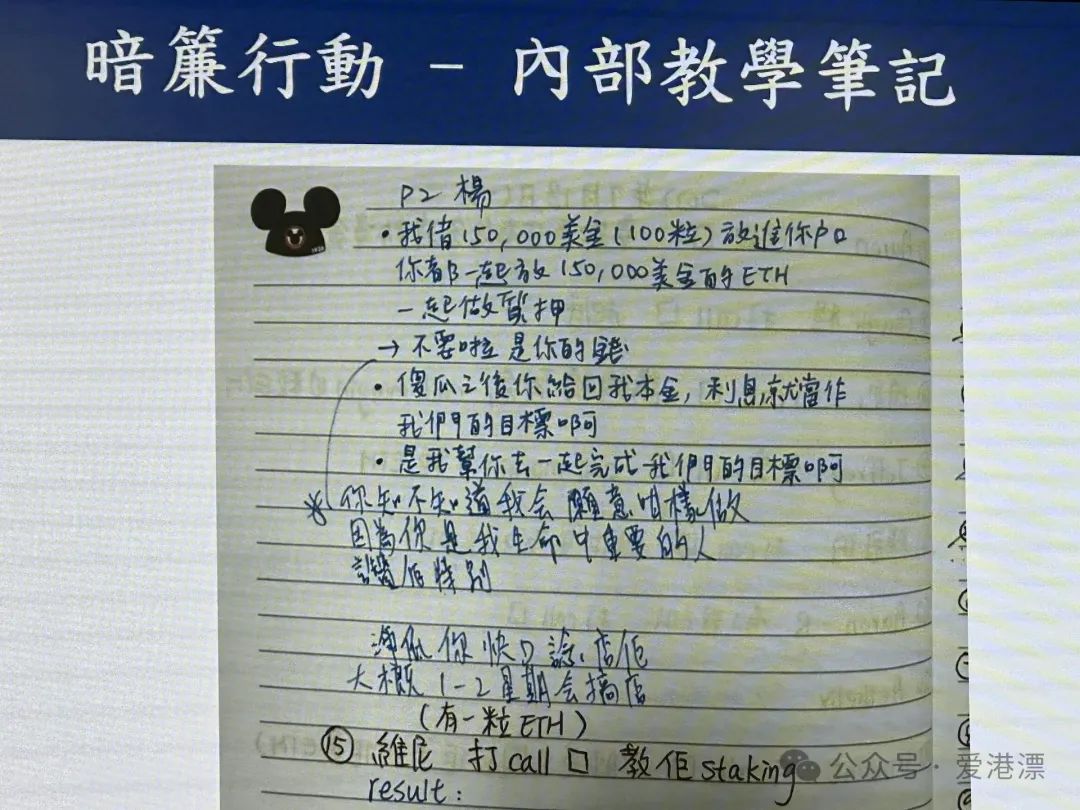 暗簾行動 - 內部教學筆記
P2 楊
• 我借150,000美金(100粒)放進你戶口
你都一起放150,000美金的ETH
一起做質押
→ 不要啦 是你的錢
• 傻瓜之後你給回我本金, 利息就當作
我們的目標啊
• 是我幫你去一起完成我們的目標啊
你知不知道我会願意咁樣做
因為你是我生命中重要的人
特別
你快D諗店佢
大概1-2星期会搞店
(有一粒ETH)
⑮ 維尼 打call □ 教佢staking
result:
公众号·爱港漂